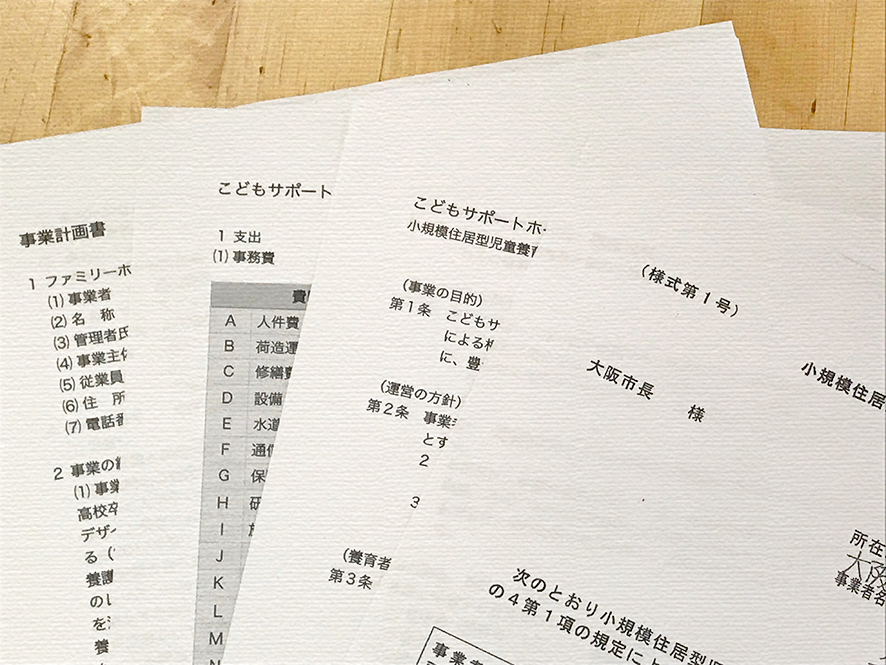 事業計画書
1 ファミリーホ
(1) 事業者
(2) 名　称
(3) 管理者氏
(4) 事業主体
(5) 従業員
(6) 住　所
(7) 電話番
2 事業の
(1) 事業
高校卒
デザイ
る（
養護
のし
を
養
こどもサポート
1 支出
(1) 事務費
費
A 人件費
B 荷造運
C 修繕費
D 設備
E 水道
F 通信
G 保
H 研
I
J
K
L
M
N
こどもサポートホ
小規模住居型児童養育
（事業の目的）
第1条　こどもサ
による
に、豊
（運営の方針）
第2条　事業
とす
2
3
（養育者
第3条
（様式第1号）
大阪市長
様
小規模住居
所在
大阪
事業者名
次のとおり小規模住居型児
の4第1項の規定によ
事業者